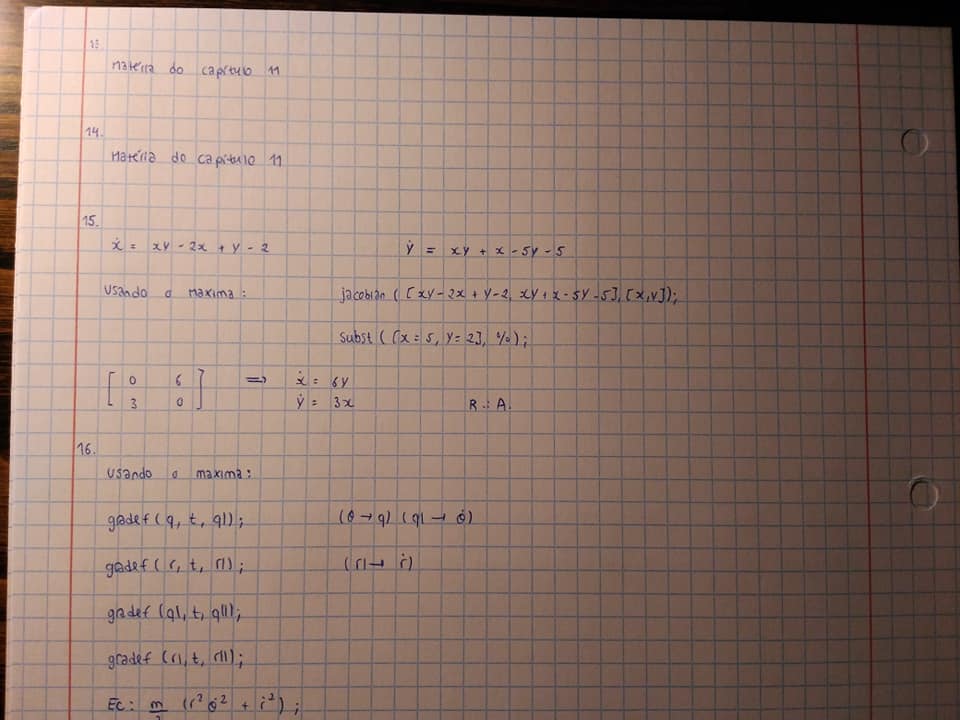 13
Matéria do capítulo 11
14.
Matéria do capítulo 11
15.
ẋ = xy - 2x + y - 2    ẏ = xy + x - 5y - 5
Usando o maxima: jacobian ( [xy - 2x + y - 2, xy + x - 5y - 5], [x,y]);
subst ( [x = 5, y = 2], %);
[ 0 6 ] => ẋ = 6y
[ 3 0 ] ẏ = 3x R.: A.
16.
Usando o maxima:
gradef (q, t, q1); (θ → q) (q1 → θ̇)
gradef (r, t, r1); (r1 → ṙ)
gradef (q1, t, q11);
gradef (r1, t, r11);
Ec: m/2 (r² θ̇² + ṙ²) ;